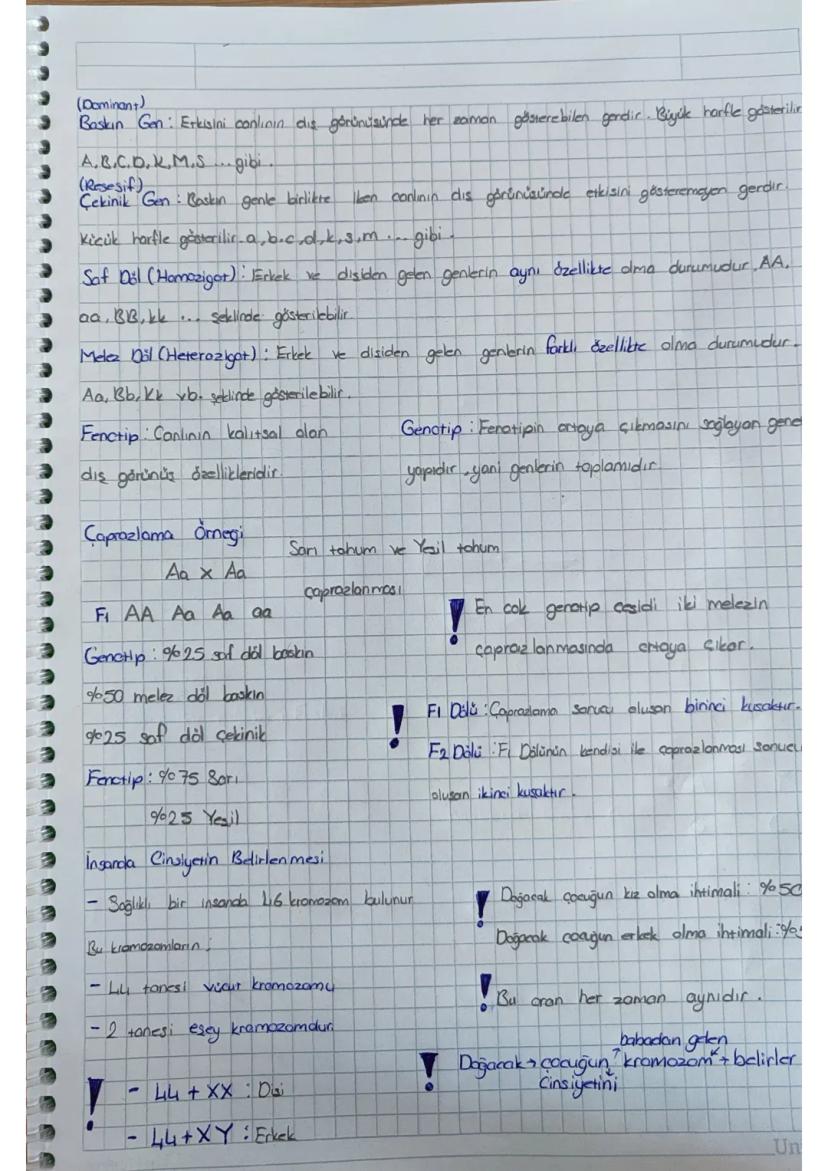 (Dominant)
Baskın Gen : Etkisini canlının dış görünüşünde her zaman gösterebilen gendir. Büyük harfle gösterilir
A,B,C,D,K,M,S ... gibi.
(Resesif)
Çekinik Gen : Baskın genle birlikte iken canlının dış görünüşünde etkisini gösteremeyen gendir.
Küçük harfle gösterilir. a,b,c,d,k,s,m ... gibi.
Saf Döl (Homozigot) : Erkek ve dişiden gelen genlerin aynı özellikte olma durumudur. AA,
aa, BB, kk ... şeklinde gösterilebilir.
Melez Döl (Heterozigot) : Erkek ve dişiden gelen genlerin farklı özellikte olma durumudur.
Aa, Bb, Kk vb. şeklinde gösterilebilir.
Fenotip : Canlının kalıtsal olan
dış görünüş özellikleridir.
Genotip : Fenotipin ortaya çıkmasını sağlayan gene
yapıdır, yani genlerin toplamıdır.
Çaprazlama Örneği
Sarı tohum ve Yeşil tohum
çaprazlanması
Aa x Aa
F1 AA Aa Aa aa
Genotip : %25 saf döl baskın
%50 melez döl baskın
%25 saf döl çekinik
Fenotip : %75 Sarı
%25 Yeşil
! En çok genotip çeşidi iki melezin
çaprazlanmasında ortaya çıkar.
! F1 Dölü : Çaprazlama sonucu oluşan birinci kuşaktır.
F2 Dölü : F1 Dölünün kendisi ile çaprazlanması sonucu
oluşan ikinci kuşaktır.
İnsanda Cinsiyetin Belirlenmesi
- Sağlıklı bir insanda 46 kromozom bulunur
Bu kromozomların ;
- 44 tanesi vücut kromozomu
- 2 tanesi eşey kromozomdur.
! - 44 + XX : Dişi
- 44 + XY : Erkek
! Doğacak çocuğun kız olma ihtimali : %50
Doğacak çocuğun erkek olma ihtimali : %
! Bu oran her zaman aynıdır.
babadan gelen
! Doğacak → çocuğun kromozom → belirler
cinsiyetini
Un